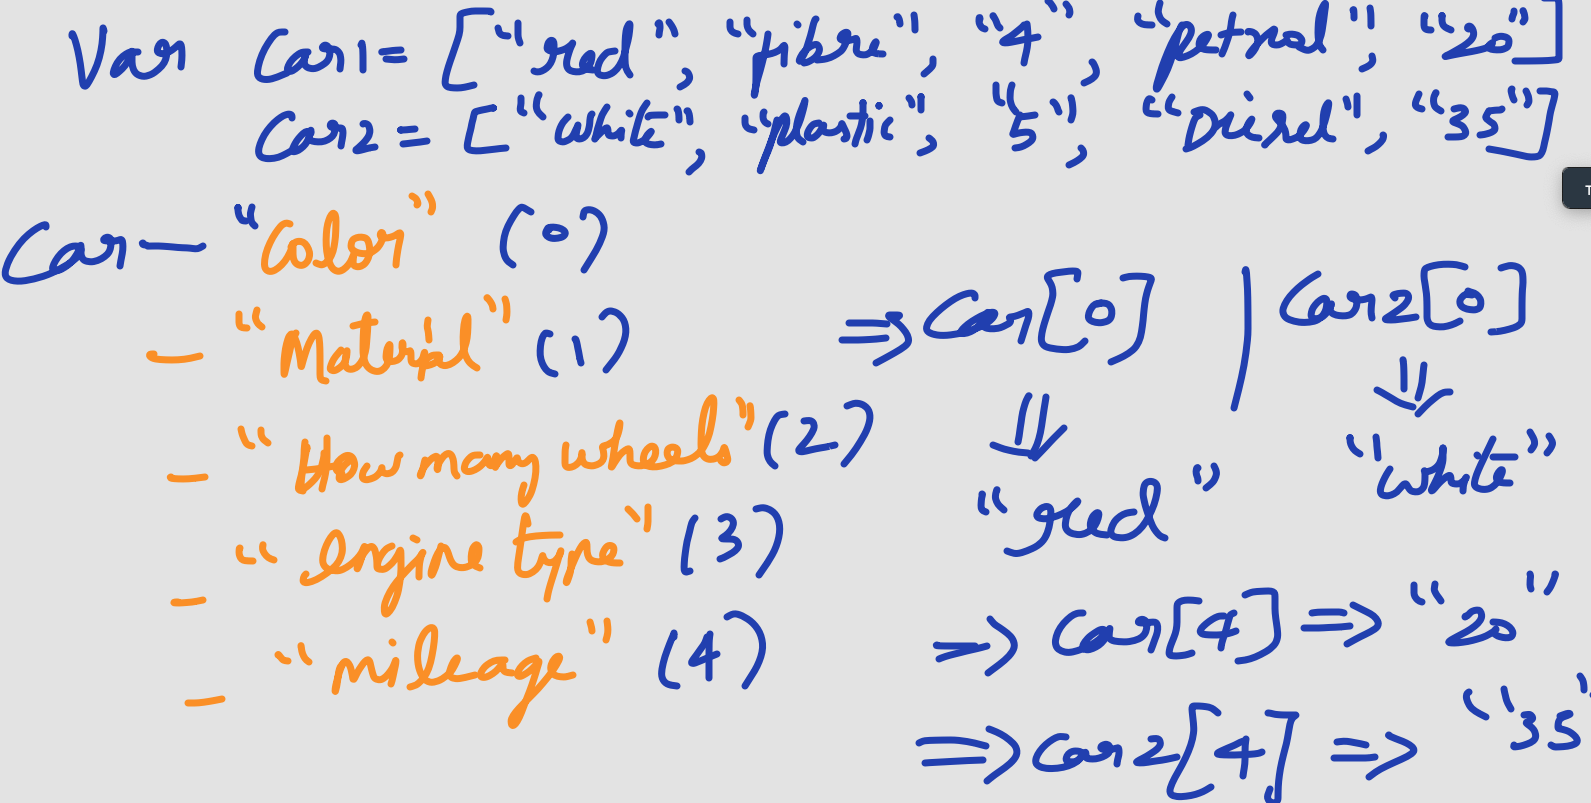 Var Car1 = ["red", "fibre", "4", "petrol", "20"]
Car2 = ["white", "plastic", "5", "Diesel", "35"]
Car — "Color" (0)
— "Material" (1)
— "How many wheels" (2)
— "engine type" (3)
— "mileage" (4)
⇒ Car[0] | Car2[0]
⇓ ⇓
"red" "white"
⇒ Car[4] ⇒ "20"
⇒ Car2[4] ⇒ "35"